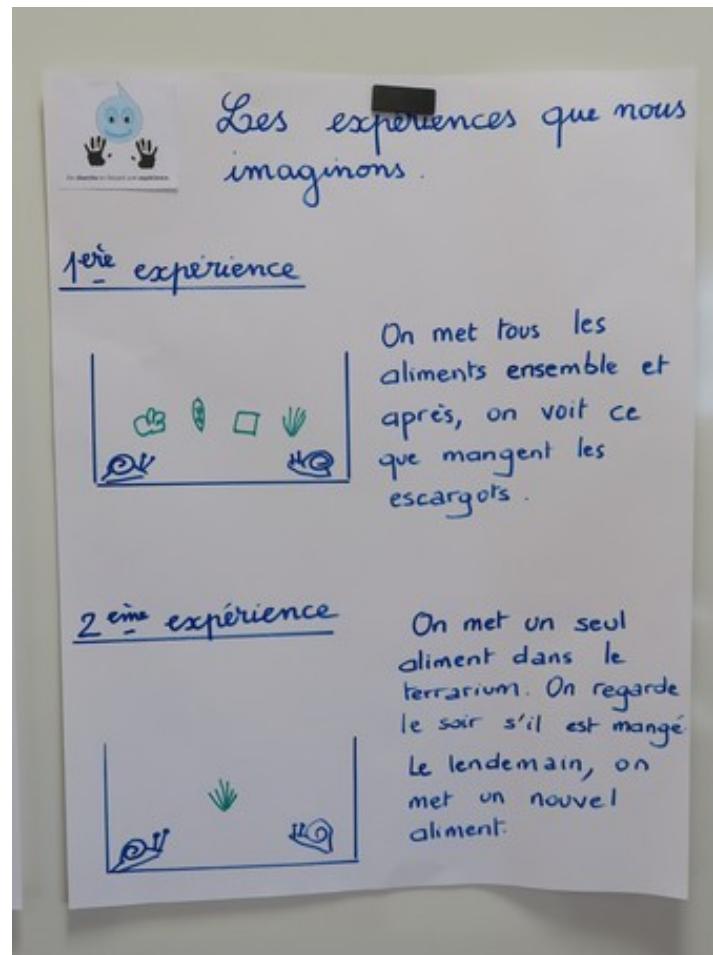 Les expériences que nous
imaginons.
On cherche en faisant une expérience.
1ère expérience
On met tous les
aliments ensemble et
après, on voit ce
que mangent les
escargots.
2ème expérience
On met un seul
aliment dans le
terrarium. On regarde
le soir s'il est mangé.
Le lendemain, on
met un nouvel
aliment.